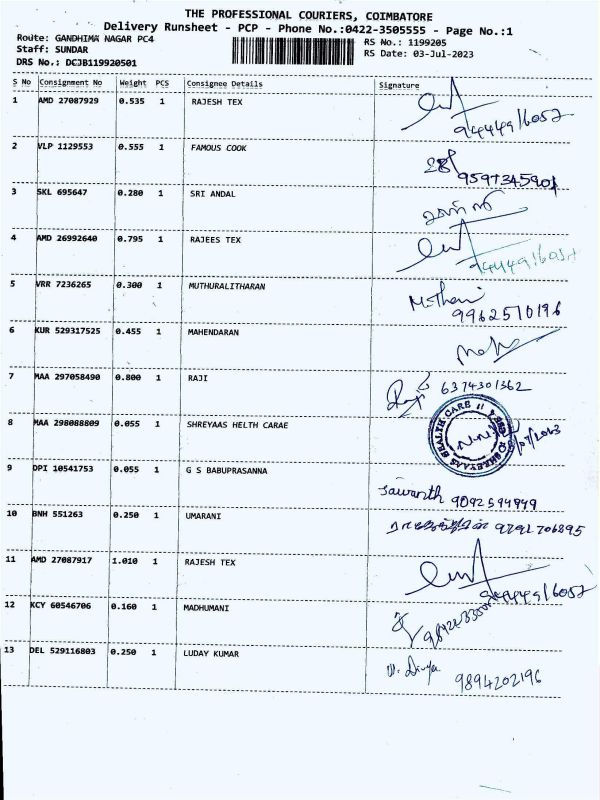 THE PROFESSIONAL COURIERS, COIMBATORE
Delivery Runsheet - PCP - Phone No.:0422-3505555 - Page No.:1
Route: GANDHIMA NAGAR PC4
RS No.: 1199205
Staff: SUNDAR
RS Date: 03-Jul-2023
DRS No.: DCJB119920501
S No Consignment No Weight PCS Consignee Details Signature
1 AMD 27087929 0.535 1 RAJESH TEX
9444916057
2 VLP 1129553 0.555 1 FAMOUS COOK
9597345901
3 SKL 695647 0.280 1 SRI ANDAL
4 AMD 26992640 0.795 1 RAJEES TEX
9444916057
5 VRR 7236265 0.300 1 MUTHURALITHARAN
9962510196
6 KUR 529317525 0.455 1 MAHENDARAN
7 MAA 297058490 0.800 1 RAJI
6374301362
8 MAA 298088809 0.055 1 SHREYAAS HELTH CARAE
SHREYAAS HEALTH CARE
9 DPI 10541753 0.055 1 G S BABUPRASANNA
10 BNH 551263 0.250 1 UMARANI
9791706895
11 AMD 27087917 1.010 1 RAJESH TEX
9444916057
12 KCY 60546706 0.160 1 MADHUMANI
13 DEL 529116803 0.250 1 LUDAY KUMAR
9894202196